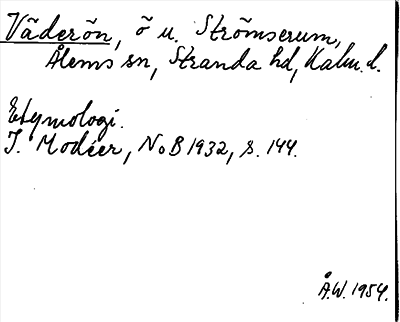 Väderön, ö u. Strömserum,
Ålems sn, Stranda hd, Kalm. l.
Etymologi.
I. Modéer, NoB 1932, s. 144.
Å.W. 1954.